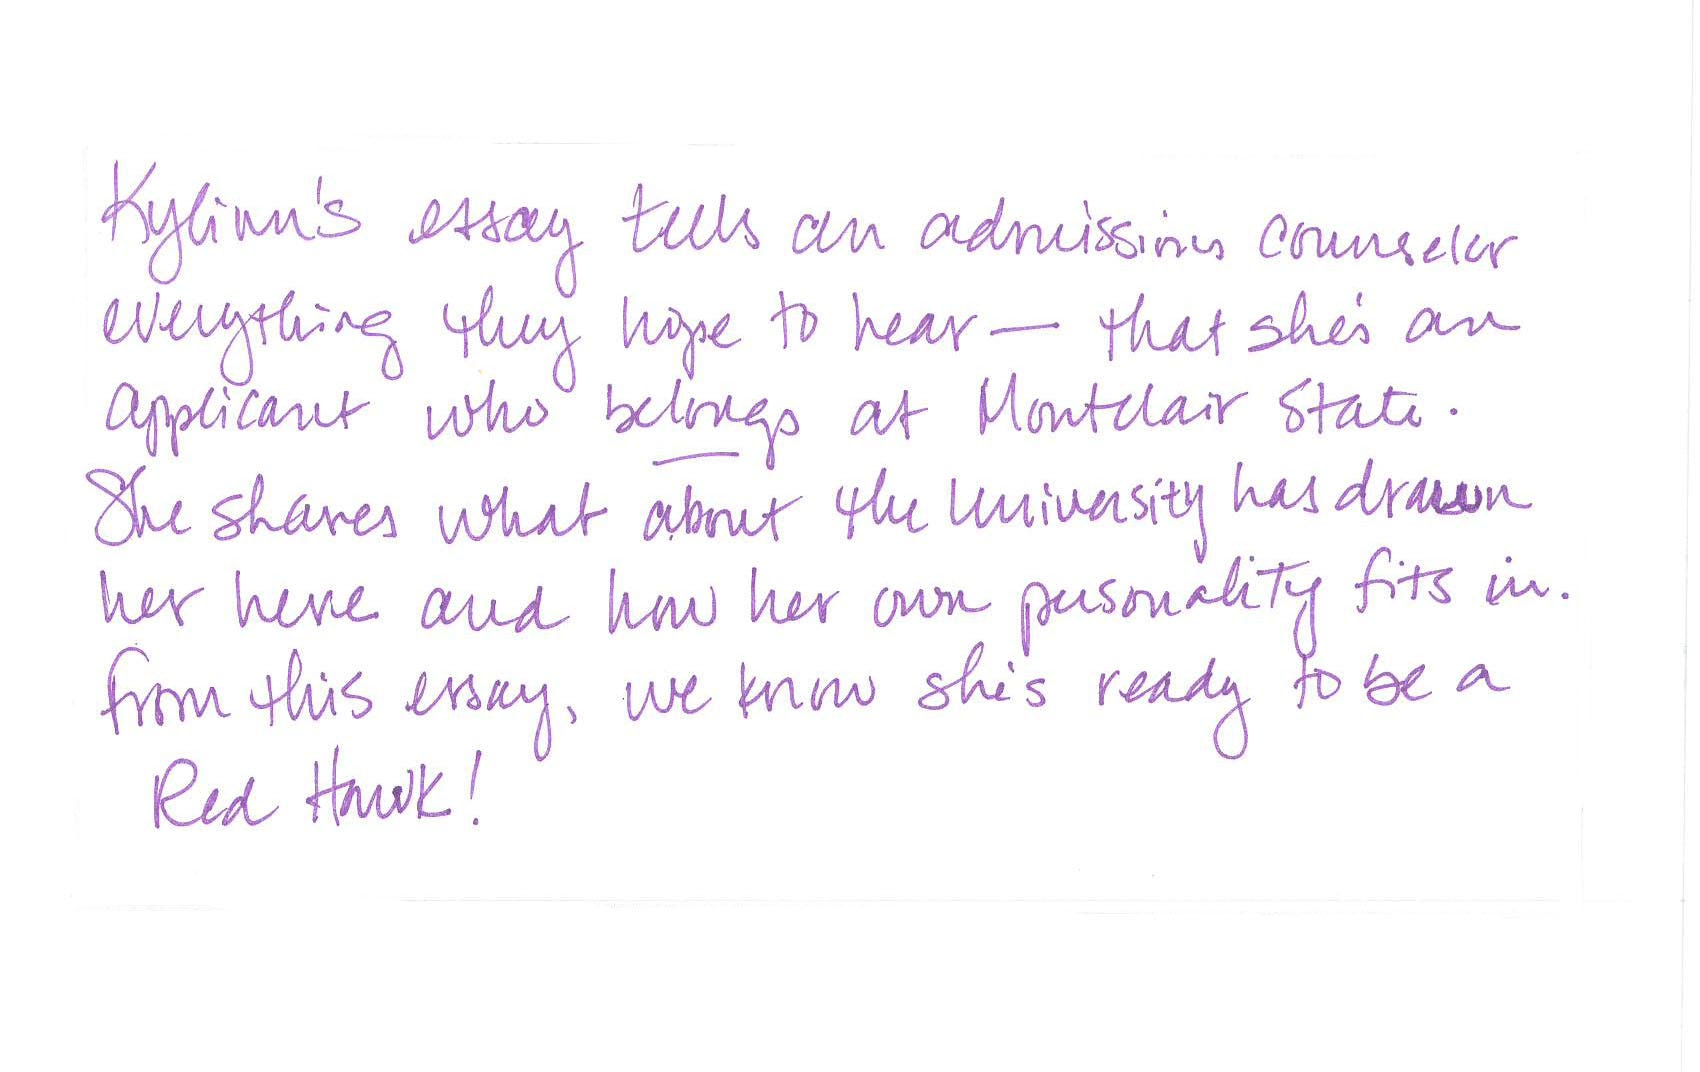 Kylinn's essay tells an admissions counselor
everything they hope to hear — that she's an
applicant who belongs at Montclair State.
She shares what about the University has drawn
her here and how her own personality fits in.
From this essay, we know she's ready to be a
Red Hawk!